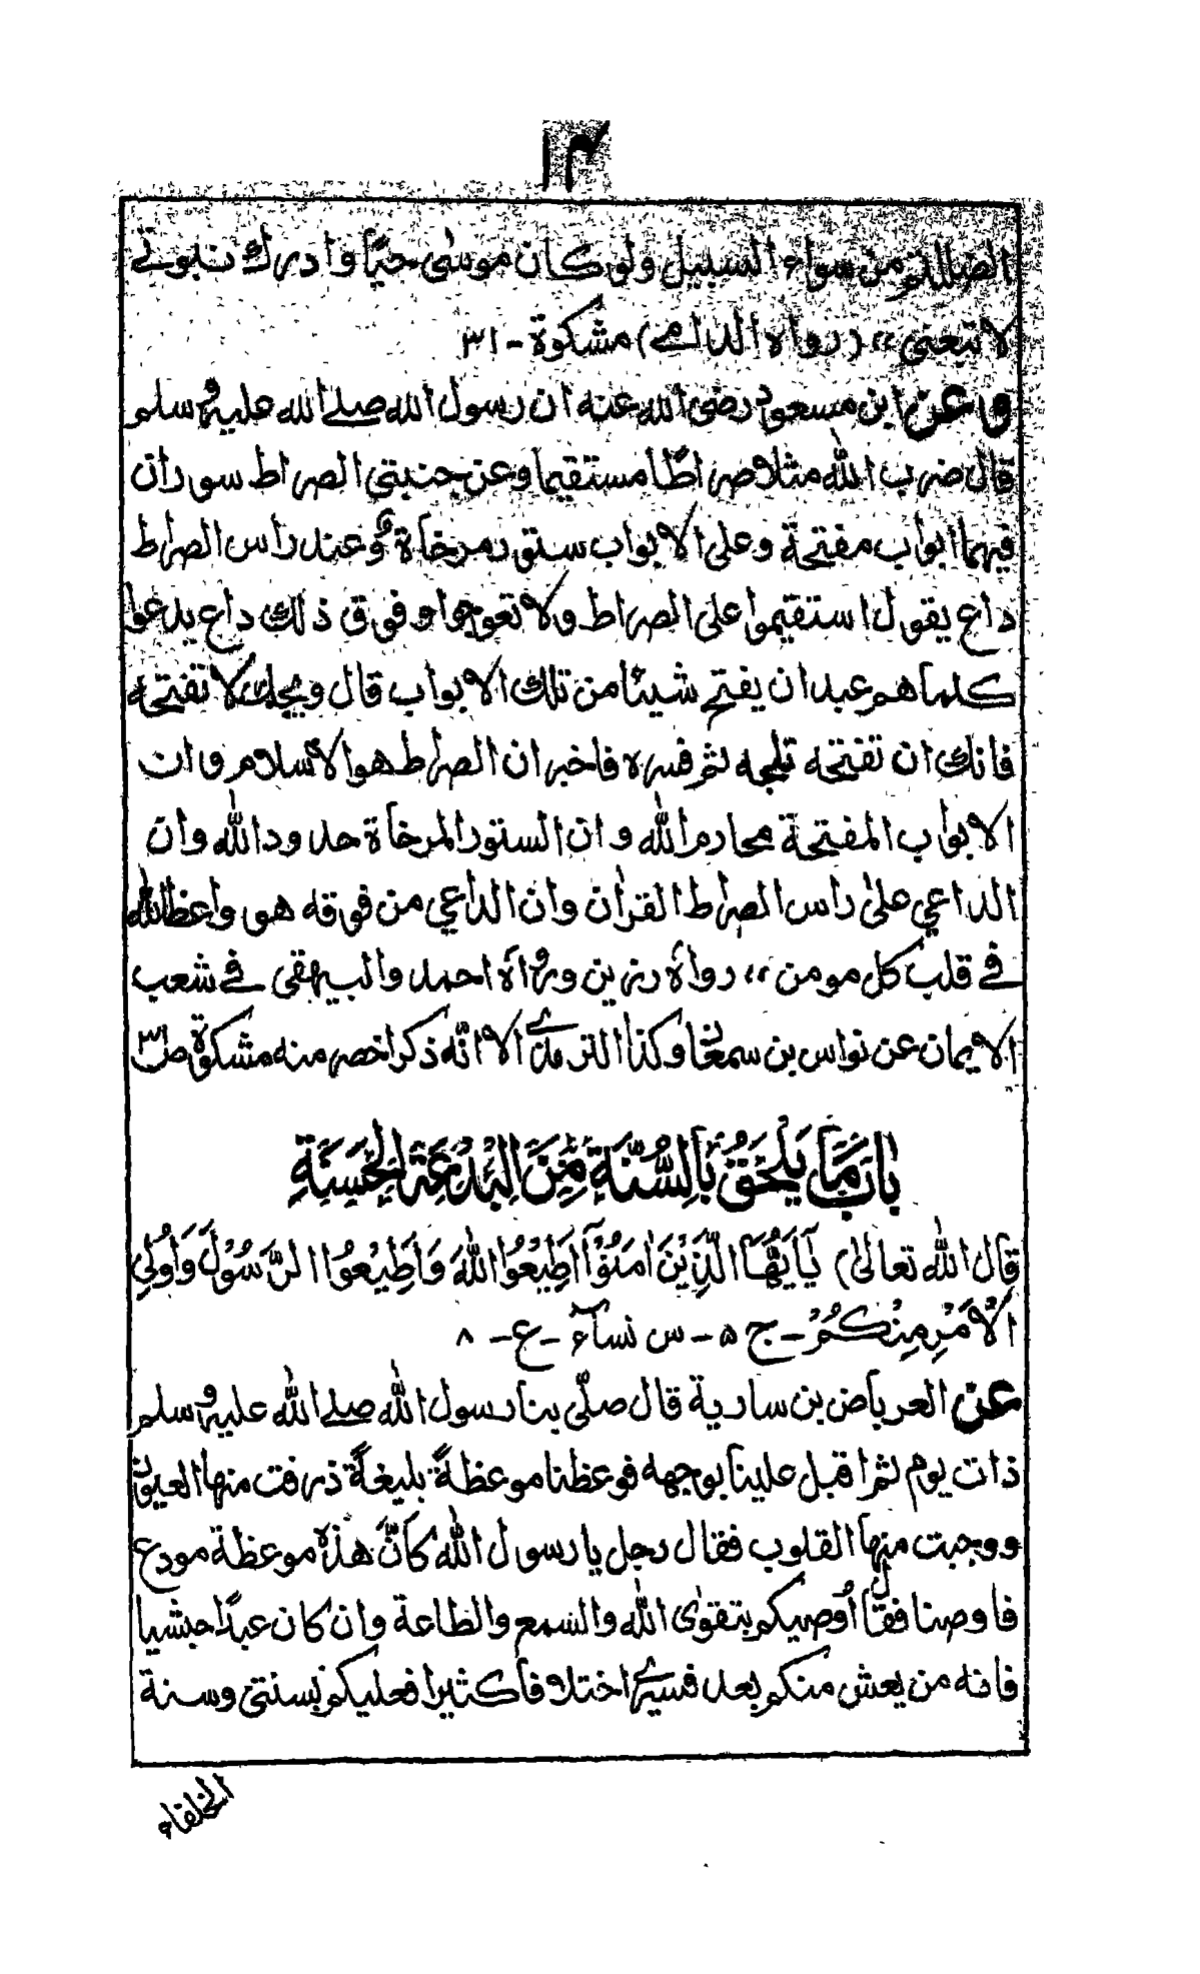 ١٣
لضللتم من سواء السبيل ولو كان موسىٰ حيًا وادرك نبوتي
لا تبعنى ،، (رواه الدارمے) مشكوة - ٣١
وعن ابن مسعود رضى الله عنه ان رسول الله صلے الله عليہ وسلم
قال ضرب الله مثلا صراطًا مستقيما وعن جنبتى الصراط سوران
فيهما ابواب مفتحة وعلى الابواب ستور مرخاة وعند راس الصراط
داع يقول استقيموا على الصراط ولا تعوجوا وفوق ذلك داع يدعوا
كلما هم عبد ان يفتح شيئا من تلك الابواب قال ويحك لا تفتحه
فانك ان تفتحه تلجه ثم فسره فاخبر ان الصراط هو الاسلام وان
الابواب المفتحة محارم الله وان الستور المرخاة حدود الله وان
الداعي علىٰ راس الصراط القرأن وان الداعي من فوقه هو واعظ الله
فے قلب كل مومن ،، رواه رزين ورواه احمد والبيهقى فے شعب
الايمان عن نواس بن سمعان وكذا الترمذے الا انّه ذكر اخصر منه مشكوة صـ٣١
بَابُ مَا يَلْحَقُ بِالسُّنَّةِ مِنَ الْبِدْعَةِ الْحَسَنَةِ
قال الله تعالىٰ) يَآ اَيُّهَا الَّذِيْنَ اٰمَنُوْآ اَطِيْعُوا اللهَ وَاَطِيْعُوا الرَّسُوْلَ وَاُولِي
الْاَمْرِ مِنْكُمْ - ج ٥ - س نساء - ع - ٨
عن العرباض بن سارية قال صلّى بنا رسول الله صلے الله عليہ وسلم
ذات يوم ثم اقبل علينا بوجهه فوعظنا موعظةً بليغةً ذرفت منها العيون
ووجبت منها القلوب فقال رجل يا رسول الله كأنّ هٰذه موعظة مودع
فاوصنا فقال اُوصيكم بتقوىٰ الله والسمع والطاعة وان كان عبدًا حبشيا
فانه من يعش منكم بعد فسيرے اختلافًا كثيرا فعليكم بسنتى وسنة
الخلفاء